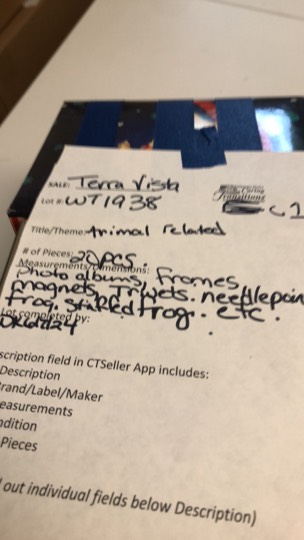 SALE: Terra Vista
Lot #: WT1938
Transitions
C1
Title/Theme: Animal related
# of Pieces: 20pcs.
Measurements/Dimensions:
Photo albums, frames
magnets, Trivets. needlepoin
frog, stuffed frog. etc.
Lot completed by:
scription field in CTSeller App includes:
Description
rand/Label/Maker
easurements
ndition
Pieces
out individual fields below Description)